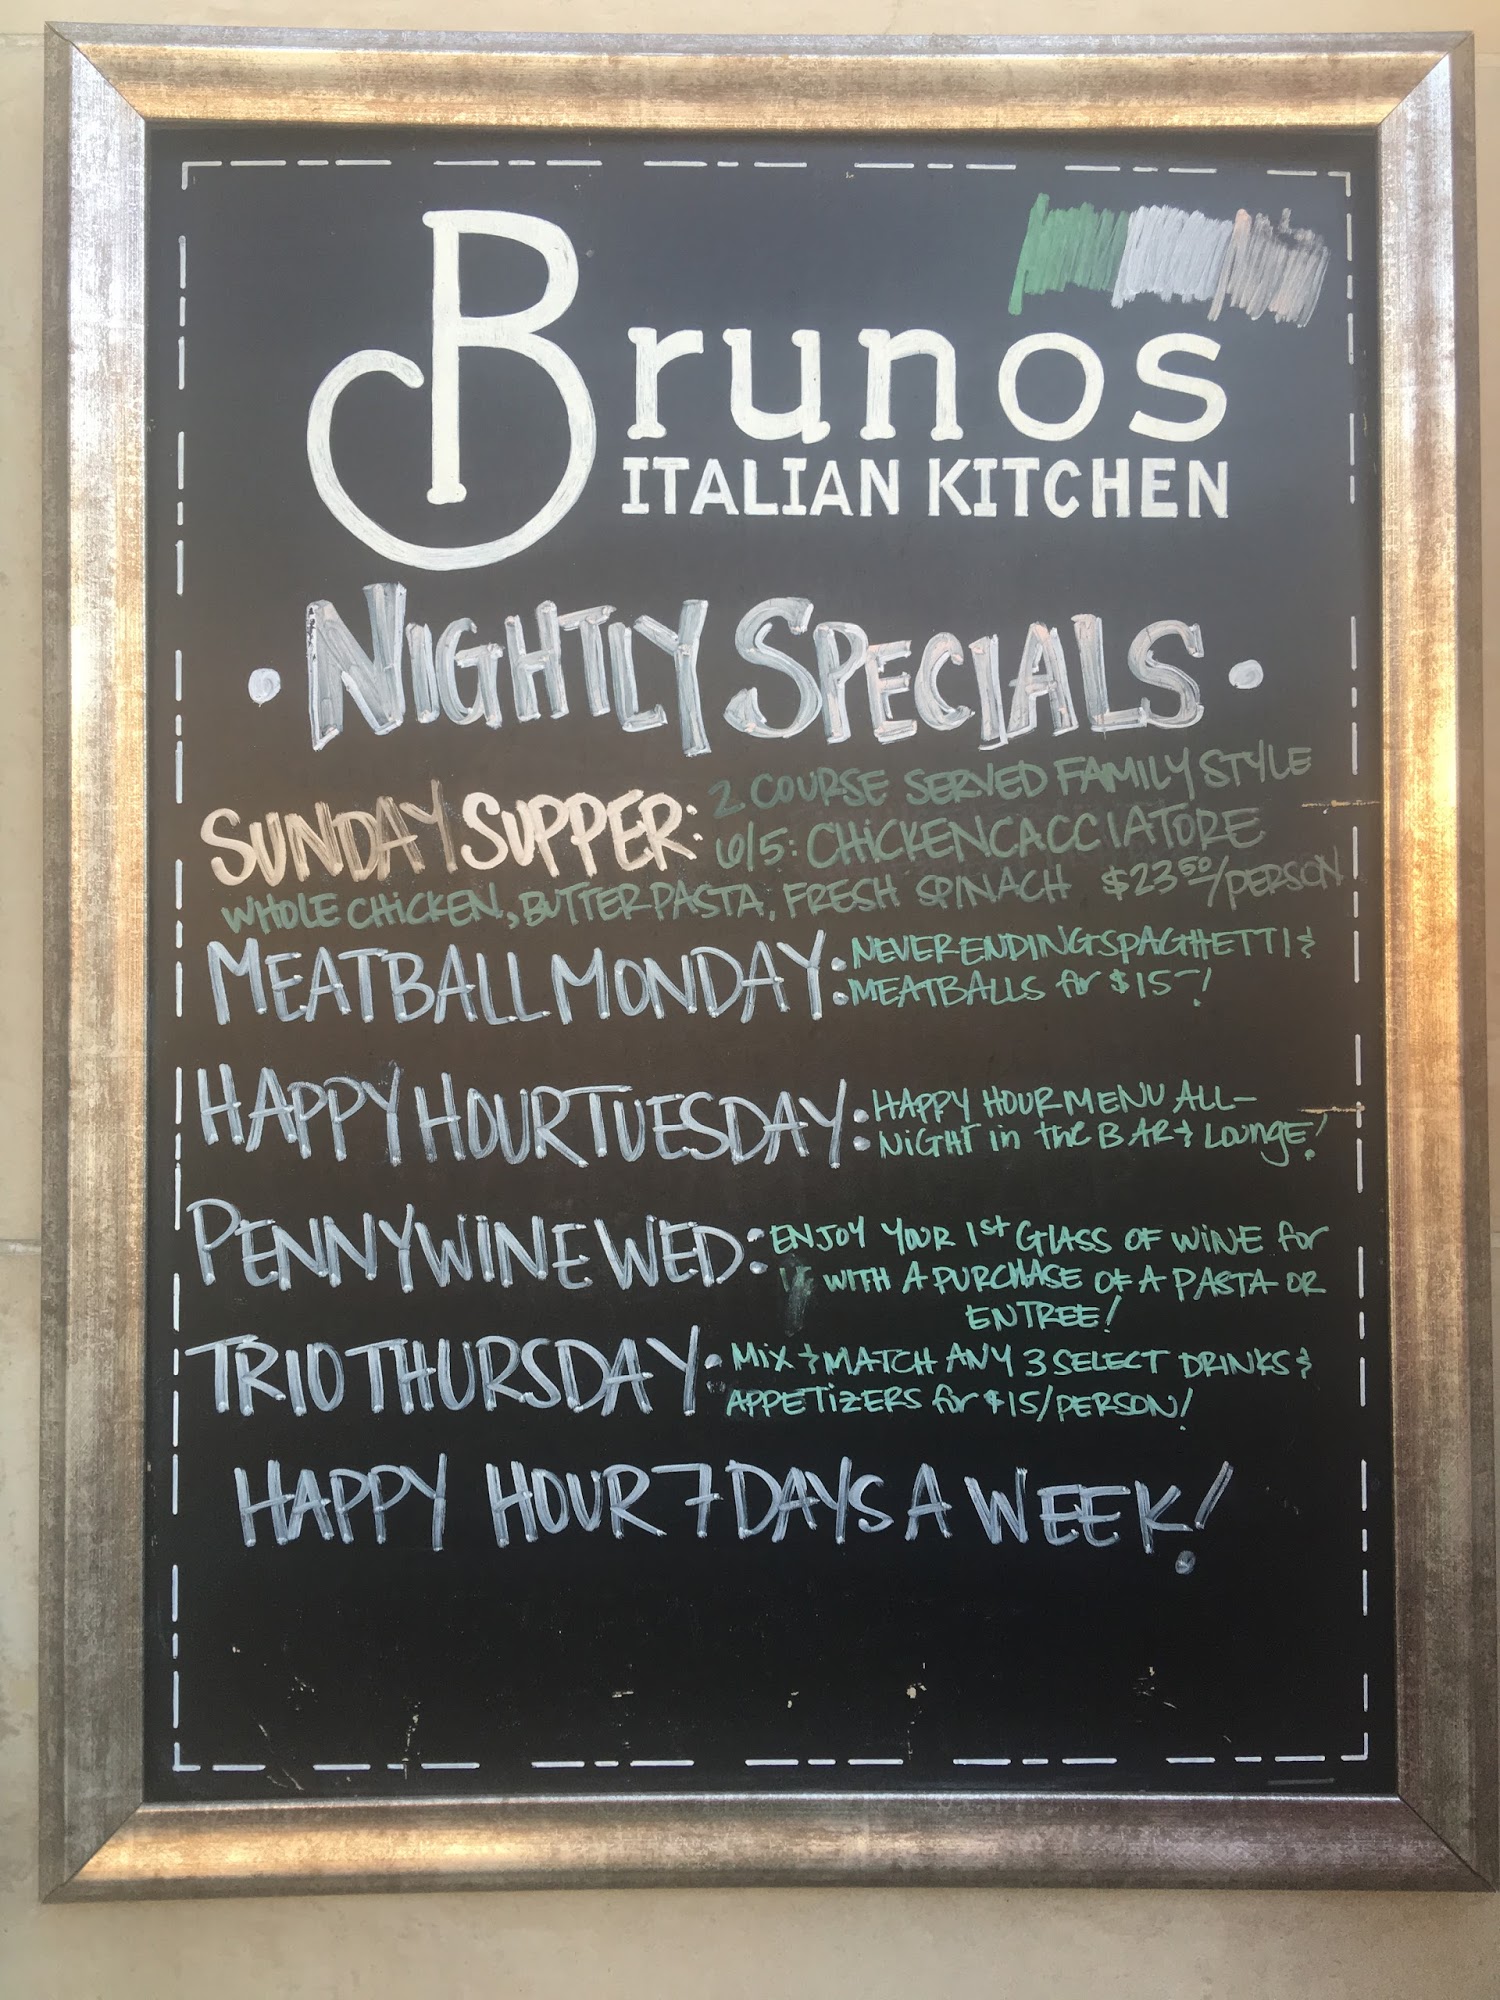 Brunos
ITALIAN KITCHEN
• NIGHTLY SPECIALS •
SUNDAY SUPPER: 2 COURSE SERVED FAMILY STYLE
6/5: CHICKEN CACCIATORE
WHOLE CHICKEN, BUTTER PASTA, FRESH SPINACH $23⁵⁰/PERSON
MEATBALL MONDAY: NEVER ENDING SPAGHETTI &
MEATBALLS for $15-!
HAPPY HOUR TUESDAY: HAPPY HOUR MENU ALL-
NIGHT in the BAR & LOUNGE!
PENNY WINE WED: ENJOY YOUR 1st GLASS OF WINE for
WITH A PURCHASE OF A PASTA OR
ENTREE!
TRIO THURSDAY: MIX & MATCH ANY 3 SELECT DRINKS &
APPETIZERS for $15/PERSON!
HAPPY HOUR 7 DAYS A WEEK!